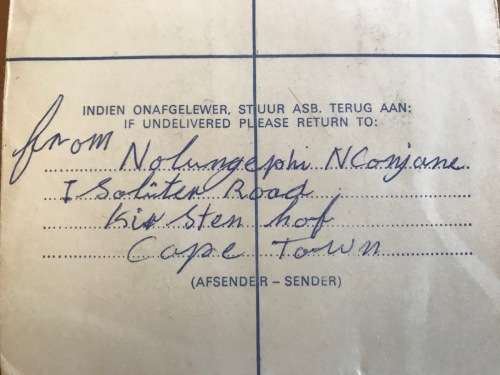 INDIEN ONAFGELEWER, STUUR ASB. TERUG AAN:
IF UNDELIVERED PLEASE RETURN TO:
from Nolungephi NConjane
I Soliter Road
Kirsten hof
Cape Town
(AFSENDER – SENDER)